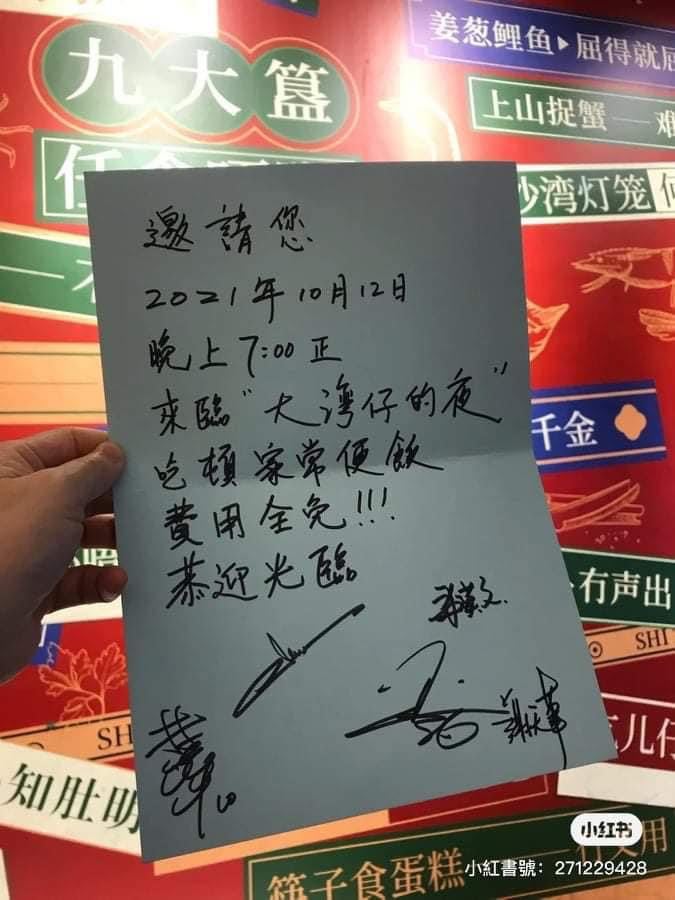 九大簋
姜葱鲤鱼▶屈得就屈
上山捉蟹——难
沙湾灯笼
邀請您
2021年10月12日
晚上7:00正
來臨"大灣仔的夜"
吃頓家常便飲
費用全免!!!
恭迎光臨
千金
冇声出
SHI
SH
儿仔
知肚明
筷子食蛋糕
小红书
小紅書號：271229428